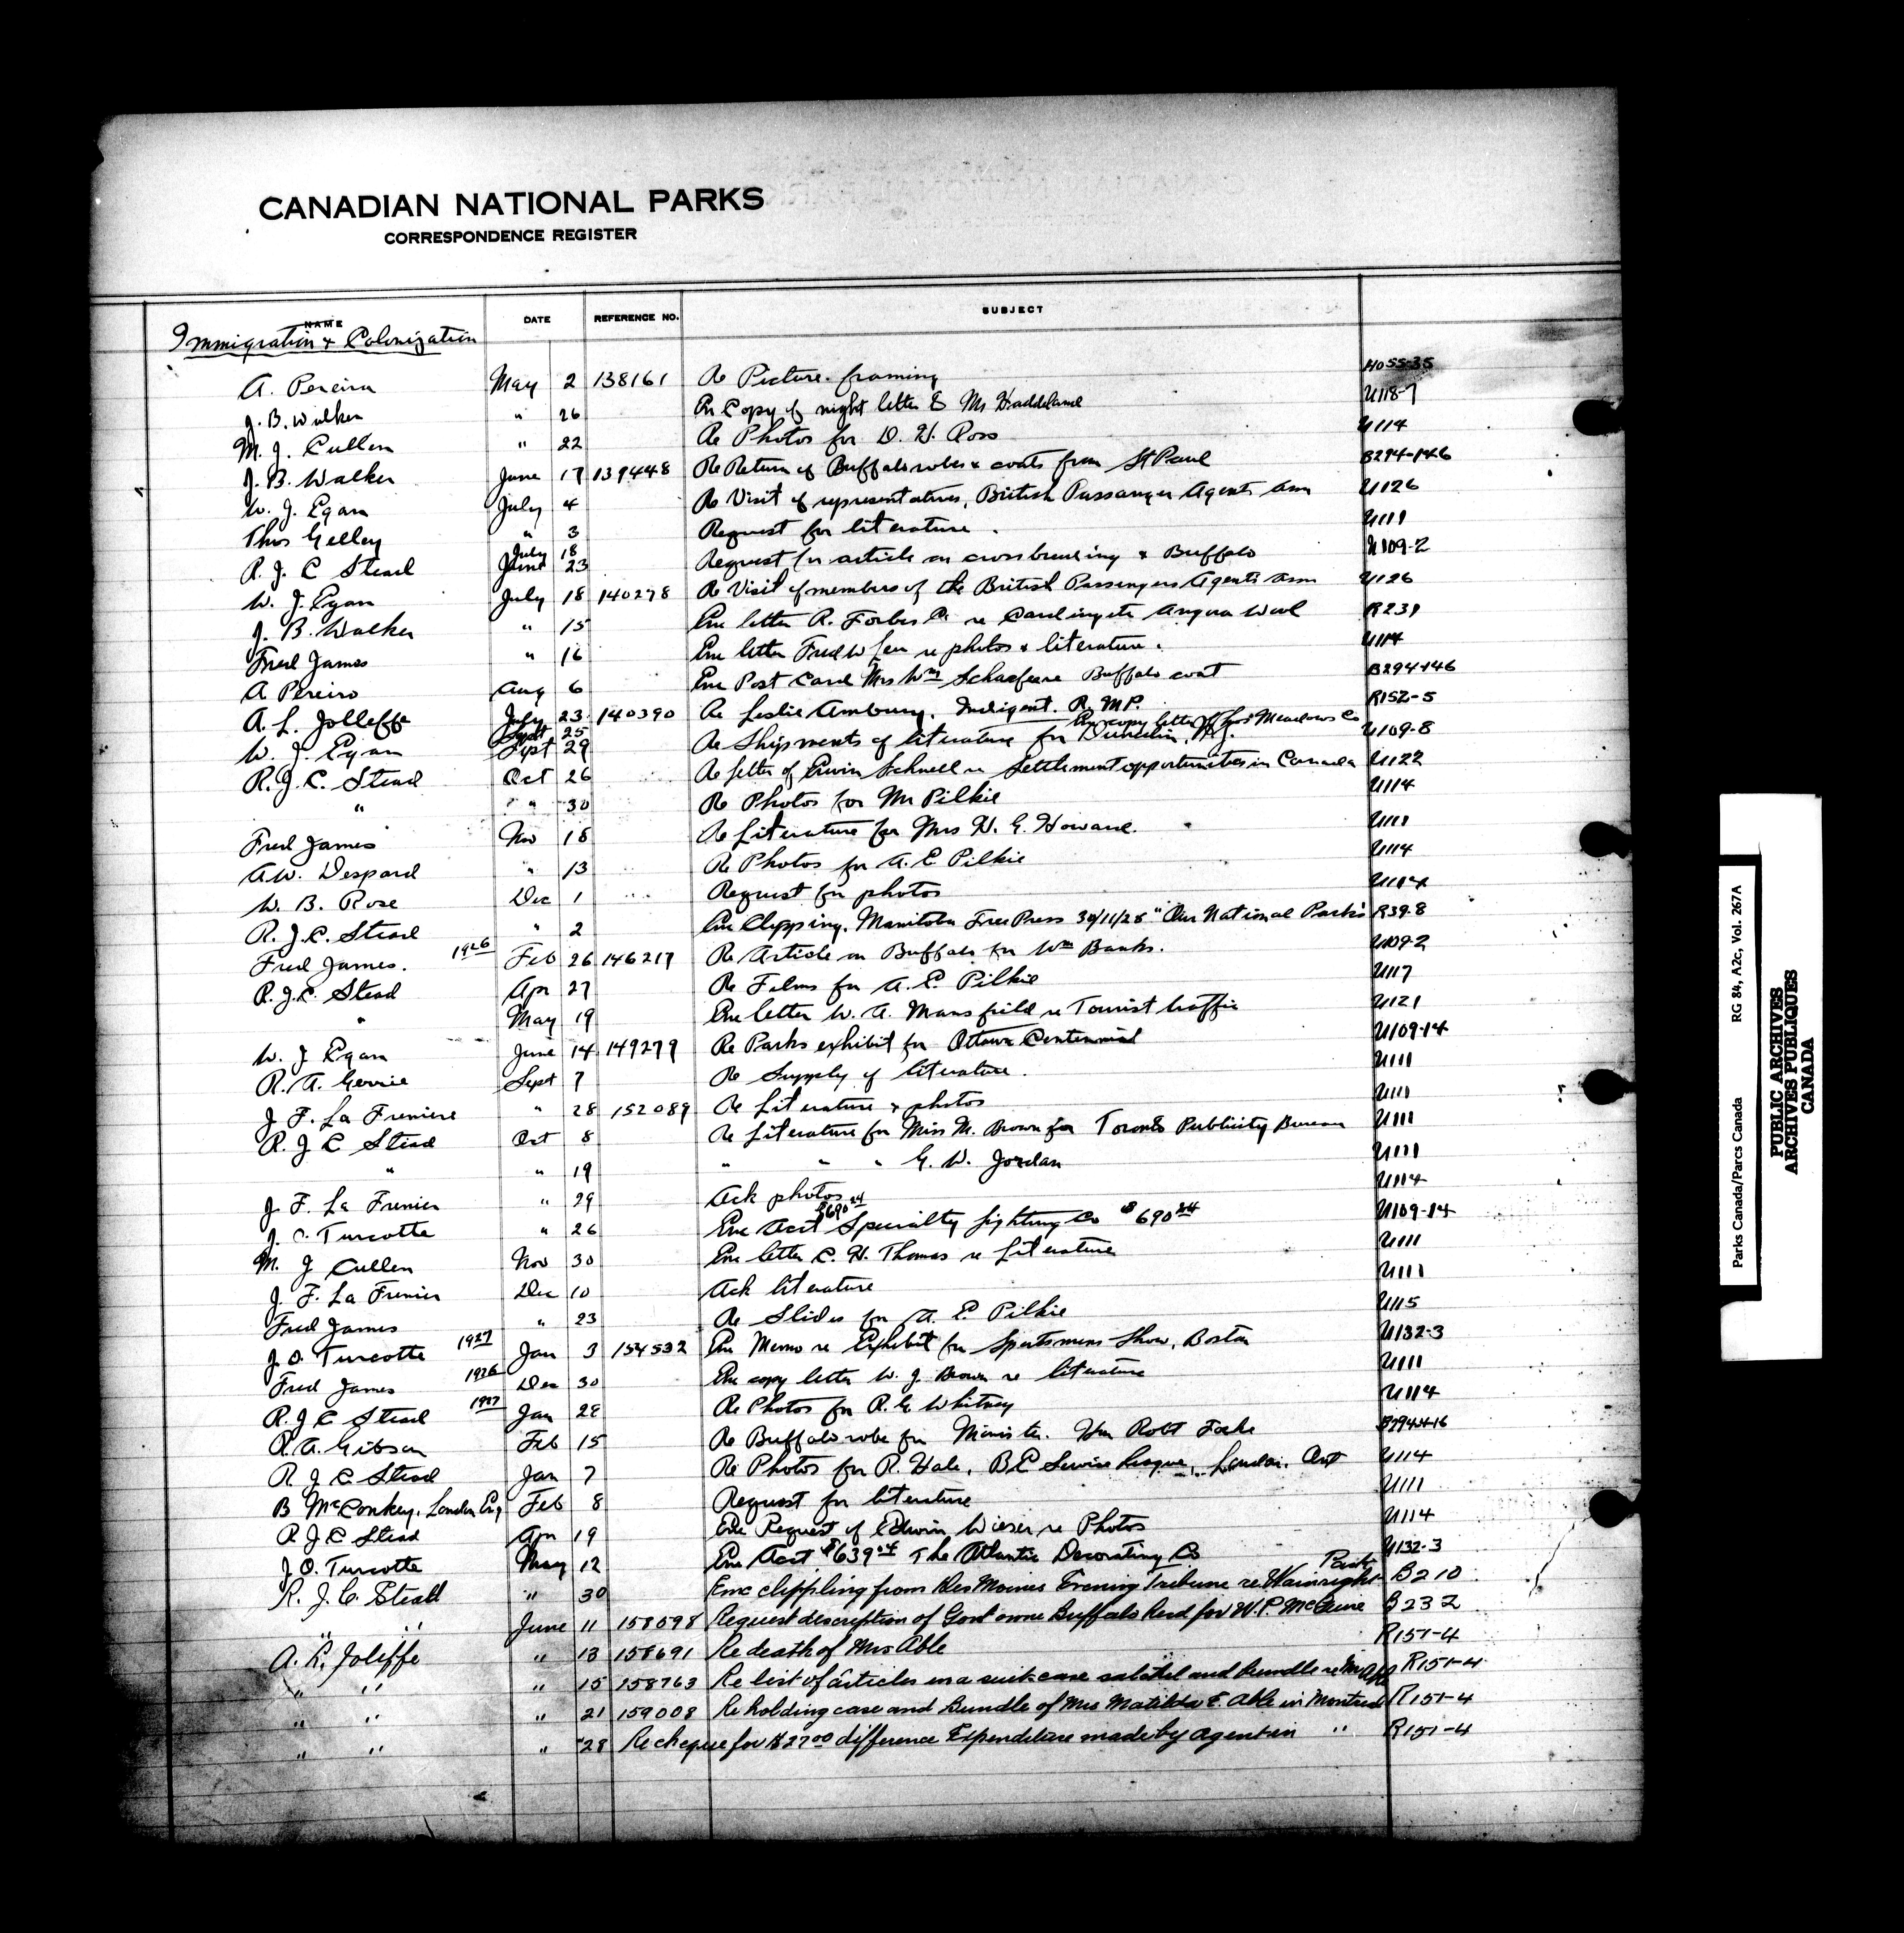 CANADIAN NATIONAL PARKS
CORRESPONDENCE REGISTER
NAME DATE REFERENCE NO. SUBJECT
Immigration & Colonization
A. Pereira May 2 138161 Re Picture framing 4055-35
J. B. Walker " 26 En Copy of night letter to Mr U118-7
M. J. Cullen " 22 Re Photos for D. H. Ross U114
J. B. Walker June 17 139448 Re Return of Buffalo robes & coats from St Paul B294-146
W. J. Egan July 4 Re Visit of representatives, British Passenger Agents Assn U126
Thos Gelley " 3 Request for literature. U111
R. J. C Stead July 18 June 23 Request for article on crossbreeding & Buffalo U109-2
W. J. Egan July 18 140278 Re Visit of members of the British Passengers Agents Assn U126
J. B. Walker " 15 Enc letter R. Forbes Co re Carding etc Angora Wool R231
Fred James " 16 Enc letter Fred W Lee re photos & literature. U114
A Pereira Aug 6 Enc Post Card Mrs Wm Schaefere Buffalo coat B294-146
A. L. Jolleffe July 23 140390 Re Leslie Ambury, Indigent. R.M.P. R152-5
W. J. Egan Sept 25 Sept 29 Re Shipments of literature for Dunedin, N.Z. En copy letter Meadows Co U109-8
R. J. C. Stead Oct 26 Re letter of Erwin Schnell re Settlement opportunities in Canada U122
" " 30 Re Photos for Mr Pilkie U114
Fred James Nov 18 Re Literature for Mrs H. G. Howard. U111
A.W. Despard " 13 Re Photos for A. E Pilkie U114
W. B. Rose Dec 1 Request for photos U114
R. J. C. Stead " 2 Enc Clipping, Manitoba Free Press 30/11/25 "Our National Parks R39-8
Fred James. 1926 Feb 26 146217 Re Article on Buffalo for Wm Banks. U109-2
R. J. C. Stead Apr 27 Re Films for A. E. Pilkie U117
" May 19 Enc letter W. A. Mansfield re Tourist traffic U121
W. J Egan June 14 149279 Re Parks exhibit for Ottawa Centennial U109-14
R. A. Gerrie Sept 7 Re Supply of literature. U111
J F. La Freniere " 28 152089 Re Literature & photos U111
R. J C Stead Oct 8 Re Literature for Miss M. Brown for Toronto Publicity Bureau U111
" " 19 " " " G. W. Jordan U111
J. F. La Frenier " 29 Ack photos U114
J. O. Turcotte " 26 Enc Acct $690.84 Specialty Lighting Co $690.84 U109-14
M. J Cullen Nov 30 Enc letter C. H. Thomas re Literature U111
J. F. La Frenier Dec 10 Ack literature U111
Fred James " 23 Re Slides for A. E. Pilkie U115
J. O. Turcotte 1927 Jan 3 154532 Enc Memo re Exhibit for Sportsmens Show, Boston U132-3
Fred James 1926 Dec 30 Enc copy letter W. J. Brown re literature U111
R. J C Stead 1927 Jan 28 Re Photos for R. G. Whitney U114
R. A. Gibson Feb 15 Re Buffalo robe for Minister. Hon Robt Forke B294-146
R. J C Stead Jan 7 Re Photos for R. Hale, B.E Service League, London, Ont U114
B McConkey, London Eng Feb 8 Request for literature U111
R J C Stead Apr 19 Enc Request of Edwin Wieser re Photos U114
J. O. Turcotte May 12 Enc Acct $639.04 The Atlantic Decorating Co U132-3
R. J. C. Stead " 30 Enc clippling from Des Moines Evening Tribune re Wainright Park B210
" " June 11 158598 Request description of Govt owne Buffalo herd for W. P. McGuire B232
A. L. Joliffe " 13 158691 Re death of Mrs Able R151-4
" " " 15 158763 Re list of articles in a suitcase satchel and bundle re Mrs Able R151-4
" " " 21 159008 Re holding case and Bundle of Mrs Matilda E. Able in Montreal R151-4
" " " 28 Re cheque for $27.00 difference Expenditure made by agent in " R151-4
Parks Canada/Parcs Canada RG 84, A2c, Vol. 267A
PUBLIC ARCHIVES
ARCHIVES PUBLIQUES
CANADA